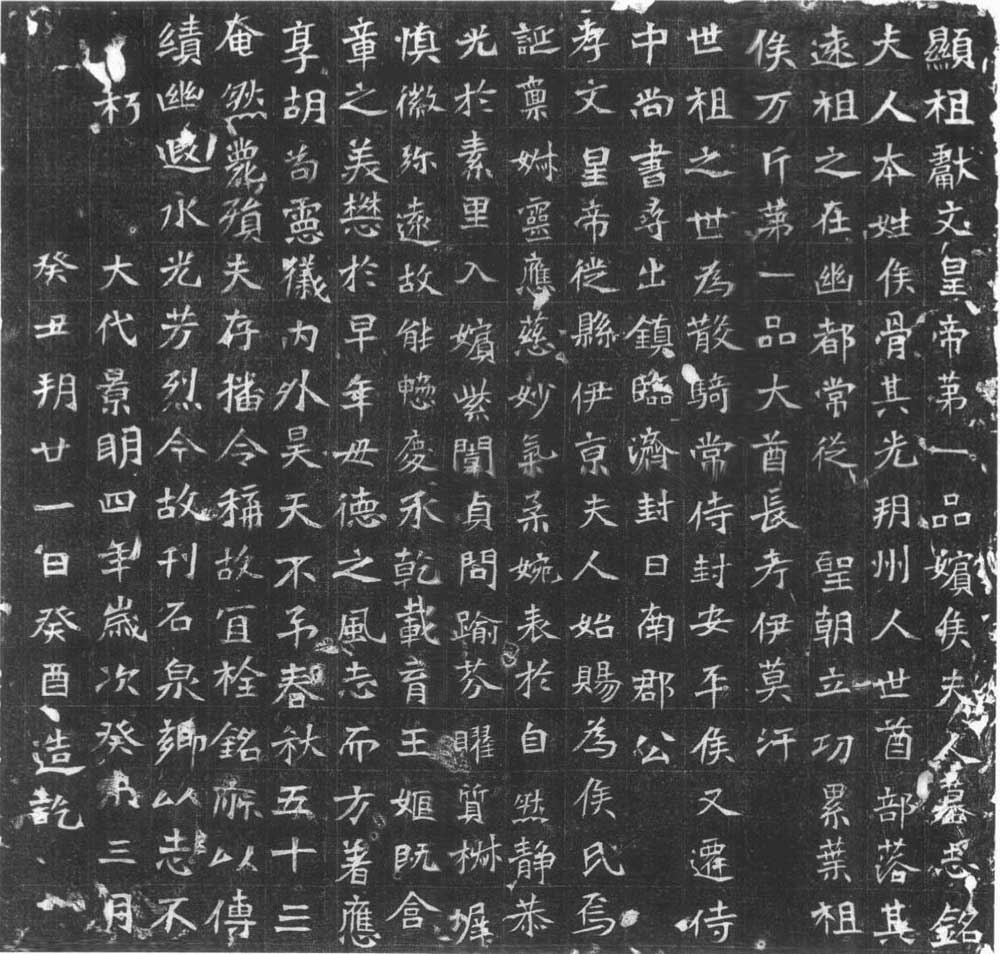 顯祖獻文皇帝第一品嬪侯夫人墓志銘
夫人本姓侯骨其先朔州人世酋部落其
遠祖之在幽都常從聖朝立功累葉祖
俟万斤第一品大酋長考伊莫汗
世祖之世為散騎常侍封安平侯又遷侍
中尚書尋出鎮臨濟封日南郡公
孝文皇帝從縣伊京夫人始賜為侯氏焉
誕稟姝靈應慈妙氣柔婉表於自然靜恭
光於素里入嬪紫闈貞問踰芬曜質椒墀
慎徽弥遠故能戀慶承乾載育王姬既含
章之美懋於早年毋德之風志而方著應
享胡耇憲儀內外昊天不弔春秋五十三
奄然薨殞夫存播令稱故宜栓銘所以傳
績幽遐水光芳烈今故刊石泉鄉以志不
朽
大代景明四年歲次癸未三月
癸丑朔廿一日癸酉造訖